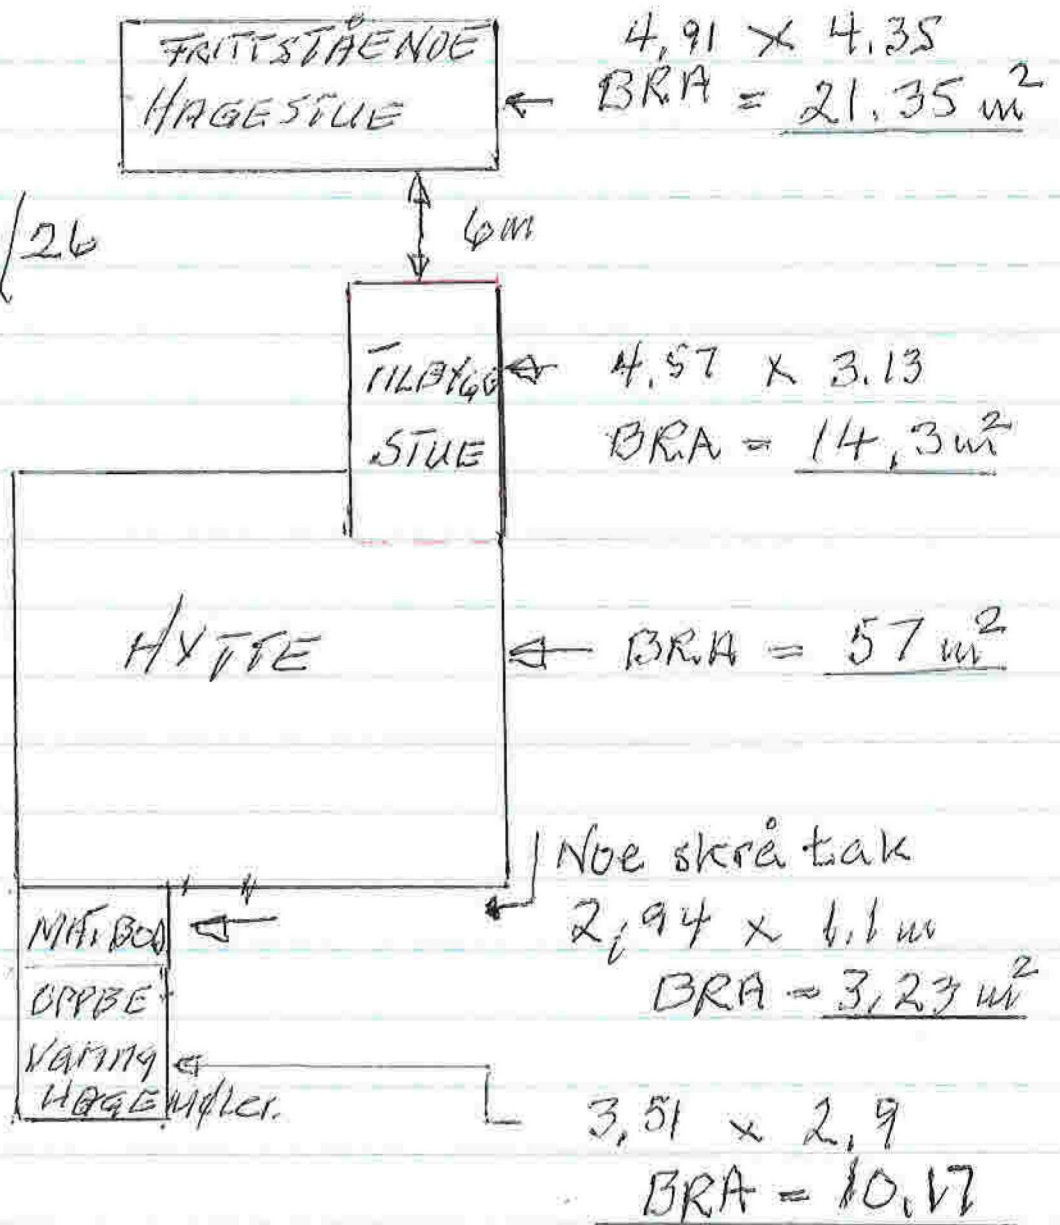 FRITTSTÅENDE
HAGESTUE
4,91 x 4.35
BRA = 21.35 m²
/26
6m
TILBYGG
STUE
4,57 x 3.13
BRA = 14,3 m²
HYTTE
BRA = 57 m²
Noe skrå tak
2,94 x 1.1 m
BRA = 3,23 m²
MATBOD
OPPBE
Varing
HAGEMØLER.
3,51 x 2,9
BRA = 10,17